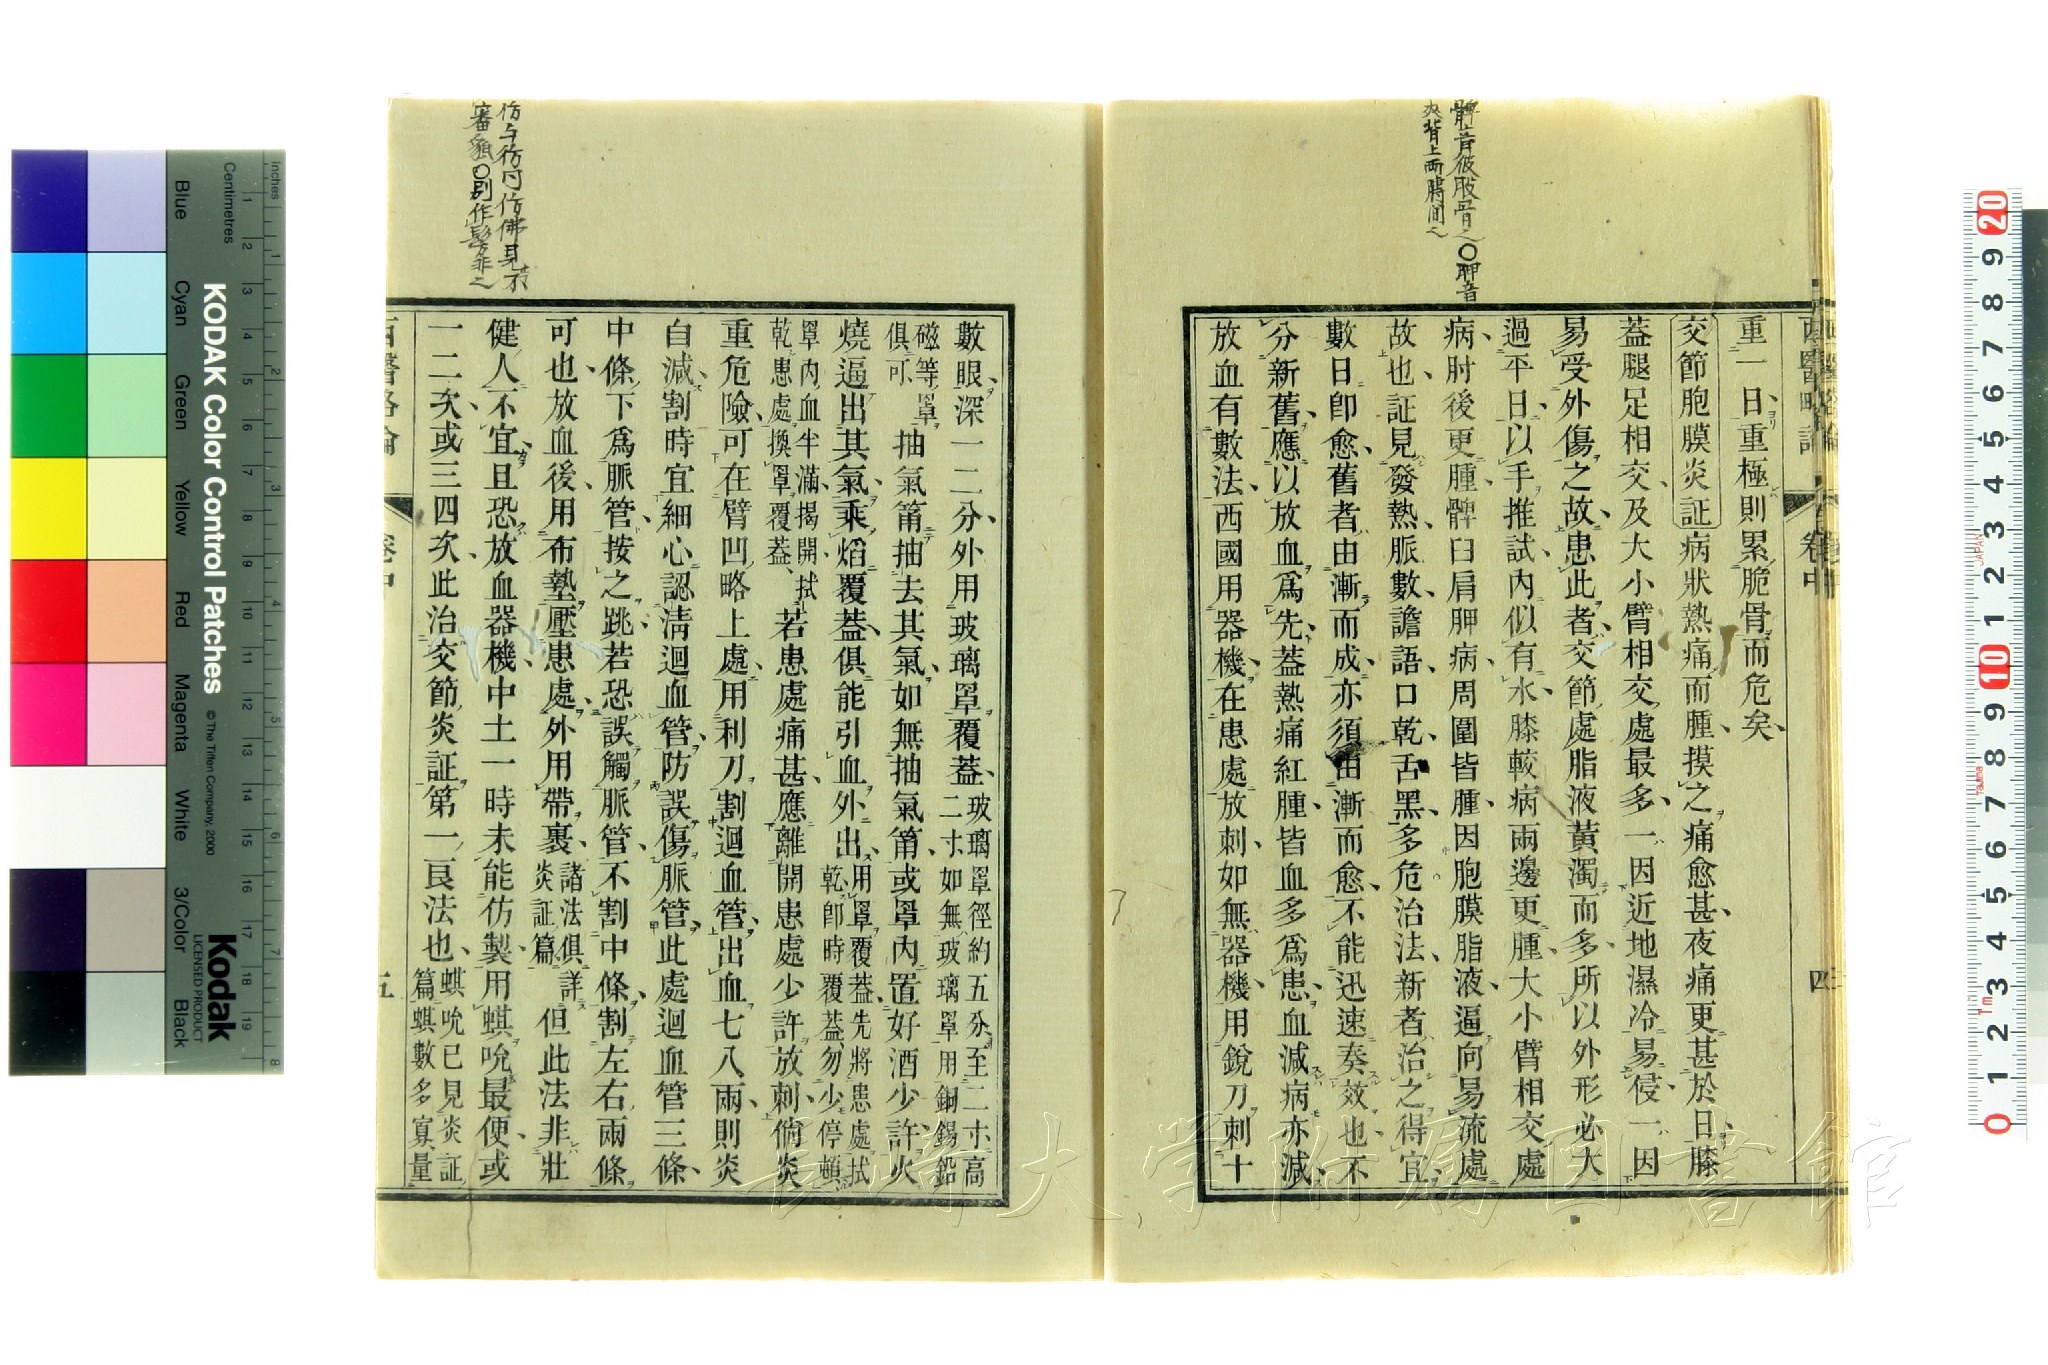 髀音彼股骨也〇胛音
夾背上兩膊間也
西醫略論
卷中
四
重一日重極則累脆骨而危矣
交節胞膜炎証病狀熱痛而腫摸之痛愈甚夜痛更甚於日膝
葢腿足相交及大小臂相交處最多一因近地濕冷易侵一因
易受外傷之故患此者交節處脂液黃濁而多所以外形必大
過平日以手推試內似有水膝較病兩邊更腫大小臂相交處
病肘後更腫髀臼肩胛病周圍皆腫因胞膜脂液逼向易流處
故也証見發熱脈數譫語口乾舌黑多危治法新者治之得宜
數日卽愈舊者由漸而成亦須由漸而愈不能迅速奏效也不
分新舊應以放血爲先葢熱痛紅腫皆血多爲患血減病亦減
放血有數法西國用器機在患處放刺如無器機用銳刀刺十
仿与彷同仿佛見不
審貌〇別作髣非也
數眼深一二分外用玻璃罩覆葢玻璃罩徑約五分至二寸高二寸如無玻璃罩用銅錫鉛
磁等罩俱可抽氣筩抽去其氣如無抽氣筩或罩內置好酒少許火
燒逼出其氣乘焰覆葢俱能引血外出用罩覆葢先將患處拭乾卽時覆葢勿少停頓
罩內血半滿揭開拭乾患處換罩覆葢若患處痛甚應離開患處少許放刺倘炎
重危險可在臂凹略上處用利刀割迴血管出血七八兩則炎
自減割時宜細心認淸迴血管防誤傷脈管此處迴血管三條
中條下爲脈管按之跳若恐誤觸脈管不割中條割左右兩條
可也放血後用布墊壓患處外用帶裹諸法俱詳炎証篇但此法非壯
健人不宜且恐放血器機中土一時未能仿製用蜞吮最便或
一二次或三四次此治交節炎証第一良法也蜞吮已見炎証篇蜞數多寡量
西醫略論
卷中
五
長崎大学附属図書館
KODAK Color Control Patches
© The Tiffen Company, 2000
Kodak
LICENSED PRODUCT
Inches
Centimetres
Blue
Cyan
Green
Yellow
Red
Magenta
White
3/Color
Black
1 2 3 4 5 6 7 8 9 10 11 12 13 14 15 16 17 18 19
1 2 3 4 5 6 7 8
20 9 8 7 6 5 4 3 2 1 10 9 8 7 6 5 4 3 2 1 0
JAPAN
Tajima
1m